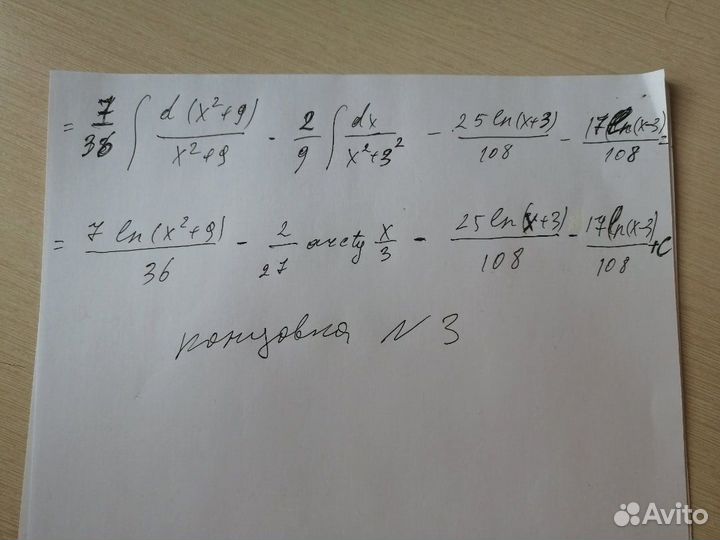 = 7/36 ∫ d(x²+9)/(x²+9) - 2/9 ∫ dx/(x²+3²) - 25 ln(x+3)/108 - 17 ln(x-3)/108 =
= 7 ln(x²+9)/36 - 2/27 arctg x/3 - 25 ln(x+3)/108 - 17 ln(x-3)/108 + C
концовка N 3
Avito